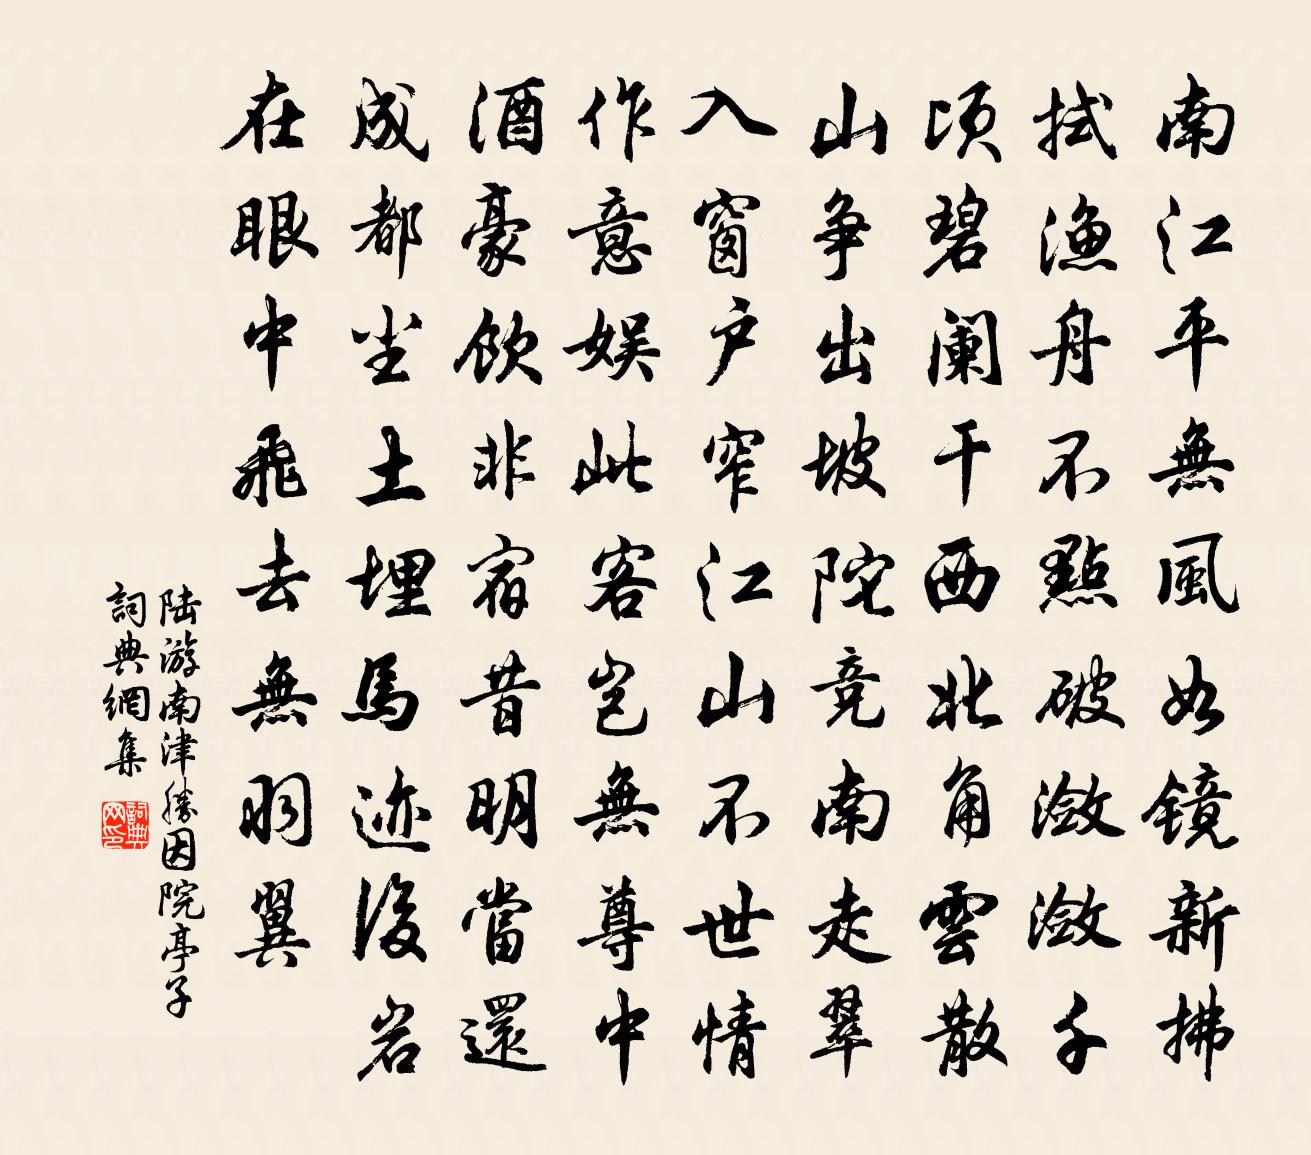 南江平無風如镜新拂
拭漁舟不點破潋潋千
顷碧阑干西北角雲散
山争出坡陀竞南走翠
入窗户窄江山不世情
作意娱此客岂無尊中
酒豪飲非宿昔明當還
成都尘土埋馬迹後岩
在眼中飛去無羽翼
陆游南津勝因院亭子
詞典網集
詞典网印